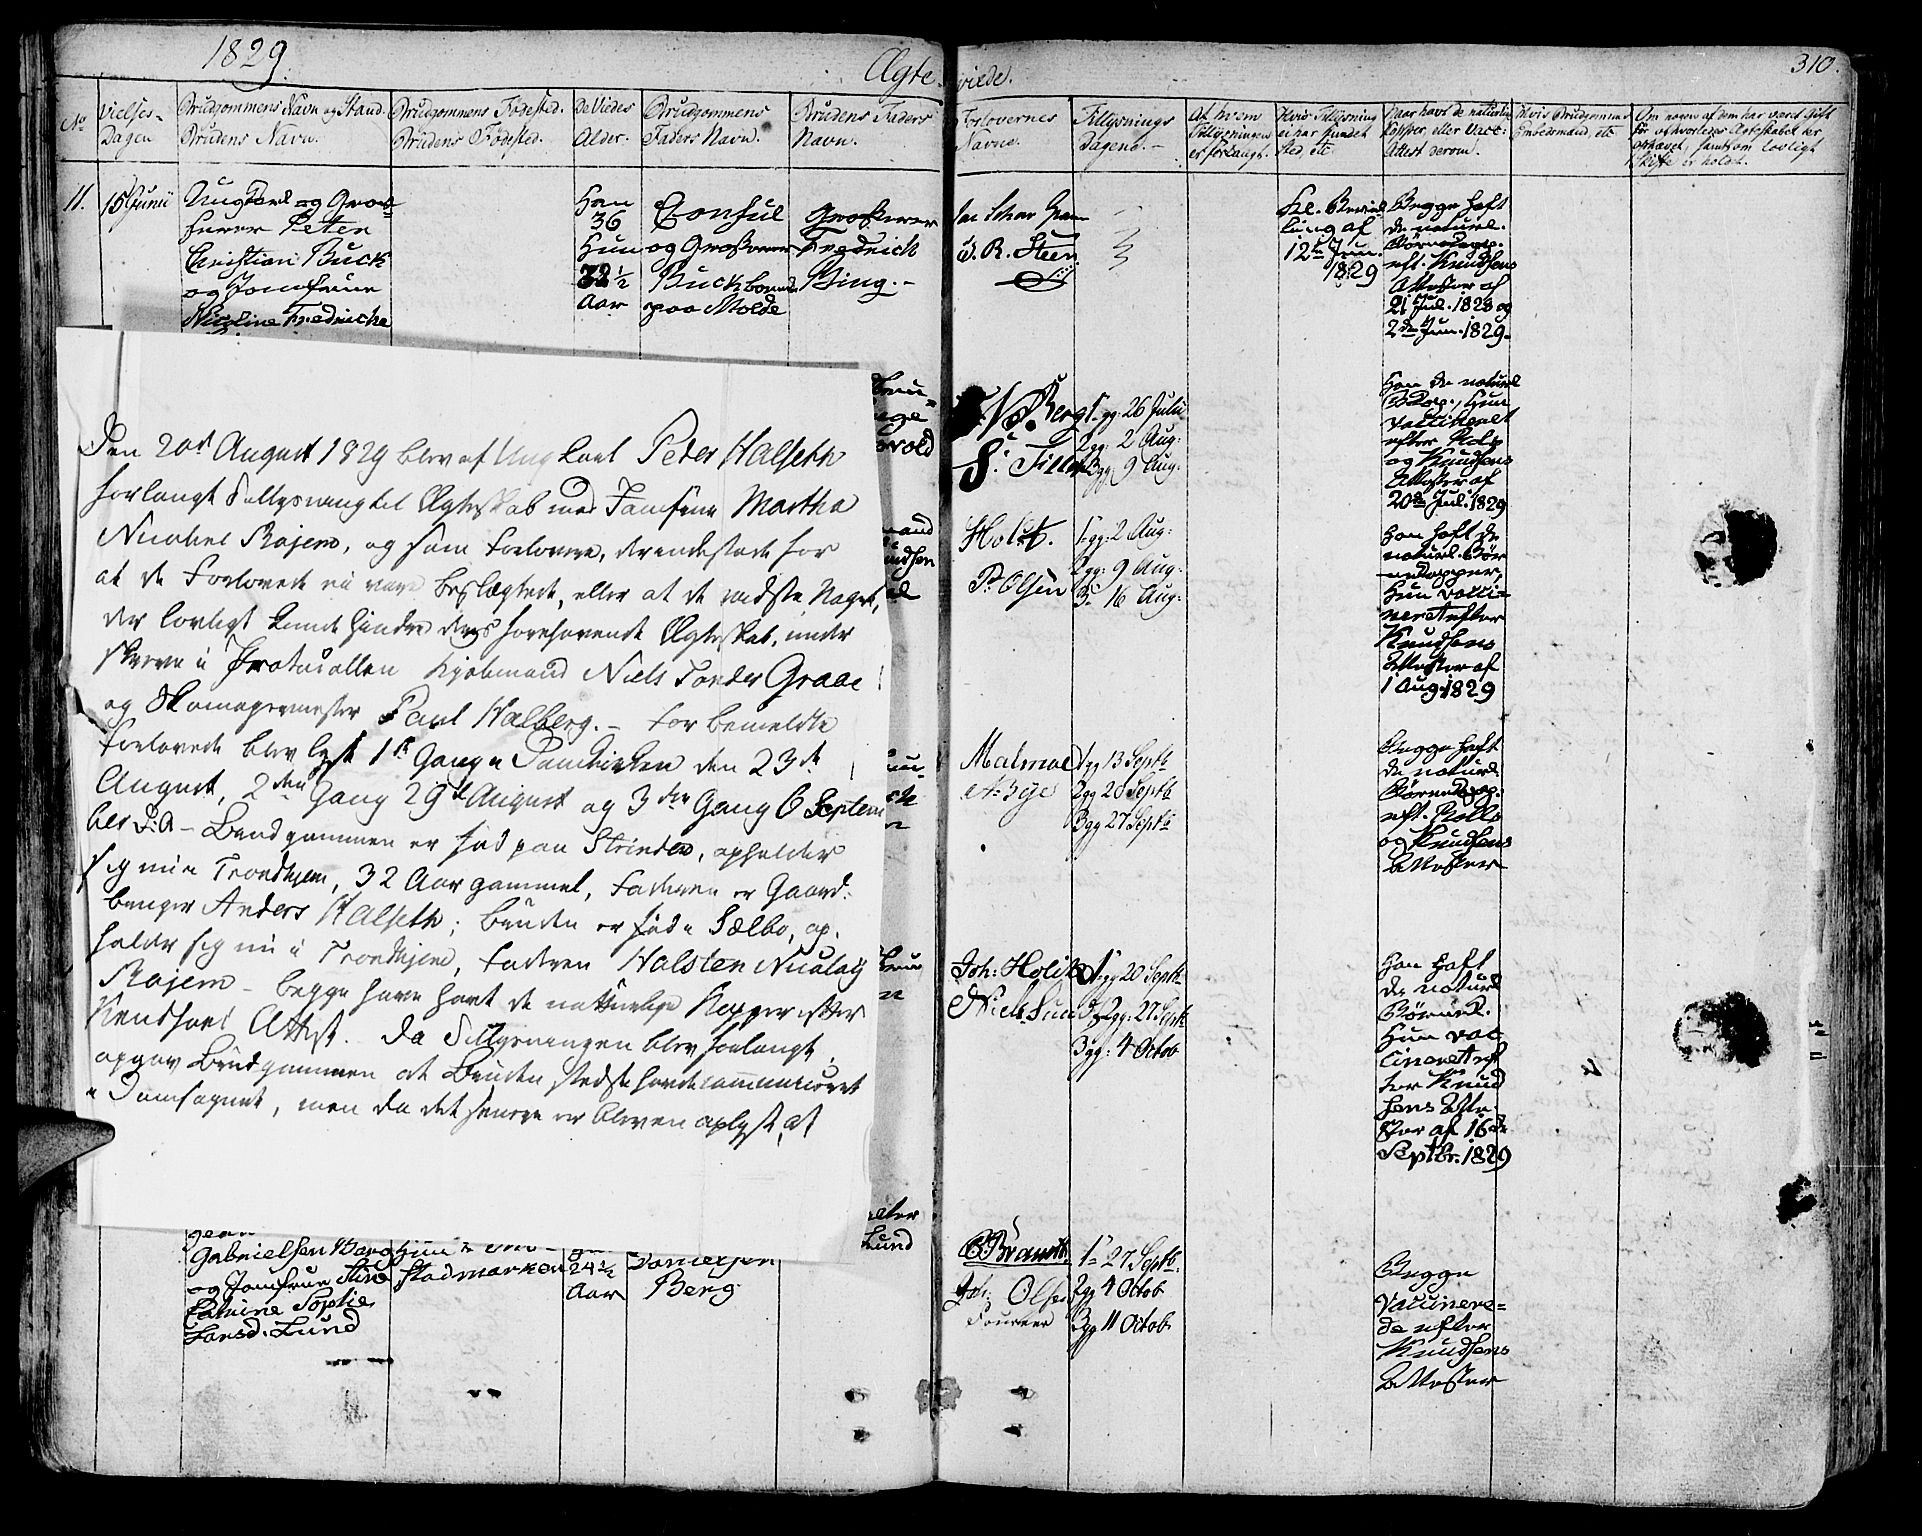 1829.
Ægte-
viede.
310.
No
Vielses-
Dagen
Brudgommens Navn og Stand.
Brudens Navn.
Brudgommens Fødested.
Brudens Fødested.
De Viedes
Alder.
Brudgommens
Faders Navn.
Brudens Faders
Navn.
Forlovernes
Navne.
Tillysnings
Dagene.
Af hvem
Tillysningen
er forlangt.
Hvis Tillysning
ei har fundet
sted, etc
Naar havt de naturlige
Kopper, eller Vacc:
Attest derom.
Hvis Brudgommens
Embedsmand, etc
Om nogen af dem har været gift
før og hvorledes Ægteskabet her
ophævet, samt om lovligt
Skifte er holdt.
11.
15 Junii
Ungkarl og Gros-
serer Peter
Christian Buck
og Jomfrue
Nicoline Fredricke
Han
36
Hun
22½
Aar
Consul
og Grosserer
Buck boende
paa Molde
Grosserer
Fredrich
Bing.-
J. R. Steen
12te Jun.
1829
Begge haft
de naturl.
Børnekopp.
eft. Knudsens
Attester af
21 Jul. 1828 og
2den Jun. 1829.
Den 20de August 1829 blev af Ungkarl Peter Halseth
forlangt Tillysning til Ægteskab med Jomfrue Martha
Nicoline Rajem, og som Forlovere, derindestode for
at de Forlovede ei vare beslægtede, eller at de vidste Noget,
der lovligt kunde hindre deres forehavende Ægteskab, under
skreve i Protocollen Kjøbmand Niels Tønder Graae
og Skomagermester Paul Halberg. - For bemeldte
Forlovede blev lyst 1te Gang i Domkirken den 23de
August, 2den Gang 29de August og 3die Gang 6 Septem
ber S: A - Brudgommen er fød paa Strinden, opholder
sig nu i Trondhjem, 32 Aar gammel, Faderen er Gaard-
bruger Anders Halseth; Bruden er fød i Sælbo, op-
holder sig nu i Trondhjem, Faderen Halsten Nicolay
Rajem - begge have havt de naturlige Kopper efter
Knudsens Attest. Da Tillysningen blev forlangt,
opgav Brudgommen at Bruden sidst havde communiceret
i Domsognet, men da det senere er bleven oplyst, at
Berg
1 gg: 26 Julii
2gg: 2 Aug:
3gg: 9 Aug:
Han de naturl
Børnekop., Hun
vaccineret
efter Rols
og Knudsens
Attester af
20de Jul. 1829
Holst.
P. Olsen
1 gg: 2 Aug:
2gg: 9 Aug:
3- 16 Aug:
Han haft de
naturl. Bør-
nekopper,
Hun vacci-
neret efter
Knudsens
Attester af
1 Aug. 1829
Malmoe
1gg 13 Septb
2gg 20 Septb
3gg 27 Septb
Begge haft
de naturl.
Børnekop.
eft. Rolls
og Knudsens
Attester
Joh: Holst
Niels Lund
1 gg 20 Septb
2gg: 27 Septb
3gg: 4 Octob
Han haft
de naturl
Børnek.
Hun vac
cineret ef
ter Knud
sens Atte-
ster af 16de
Septbr. 1829
Gabrielsen Berg
og Jomfrue Stine
Catrine Sophie
Larsd. Lund
Stadmarken
24½
Aar
Danielsen
Berg
Lund
C Brandt.
Joh: Olsen
1- 27 Septb.
2gg 4 Octob
3gg 11 Octob.
Begge
Vaccinere-
de efter
Knudsens
Attester